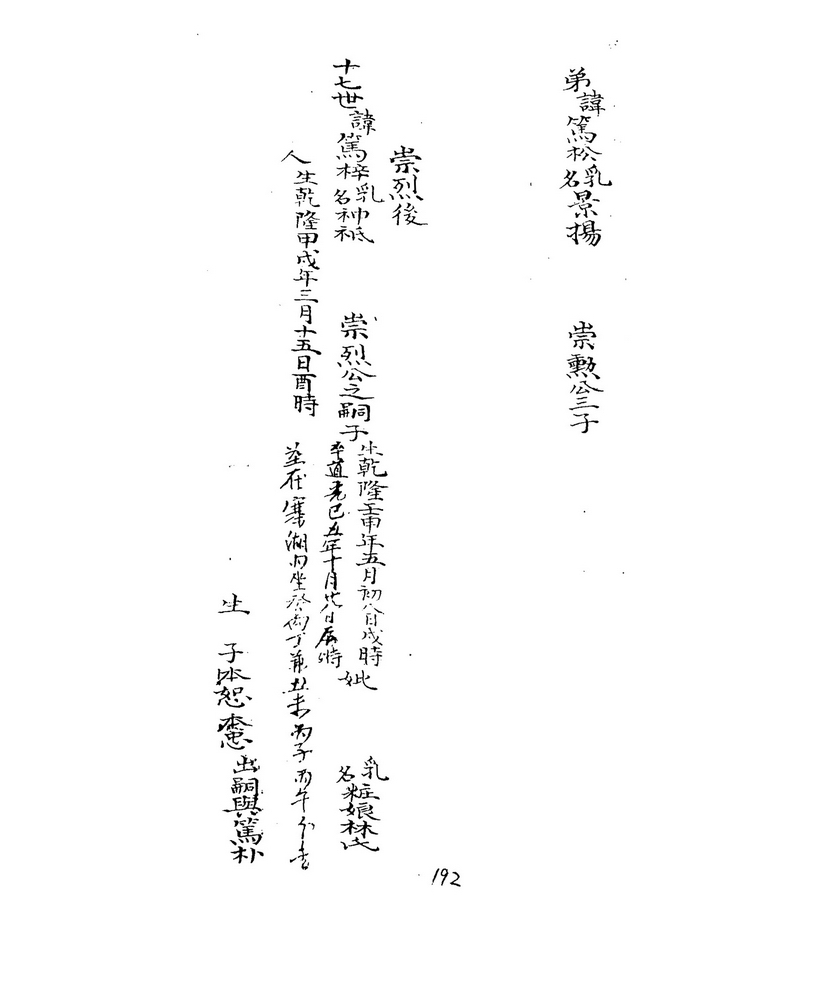 弟諱篤松乳名景揚
崇勲公三子
崇烈後
十七世諱篤梓乳名神祗
崇烈公之嗣子
生乾隆壬申年五月初八日戌時
卒道光己丑年十月廿八日辰時
妣
乳名粧娘林氏
人生乾隆甲戌年三月十五日酉時
塟在寨湖内坐癸向丁兼丑未丙子丙午分金
生
子本恕
本憲出嗣與篤朴
192